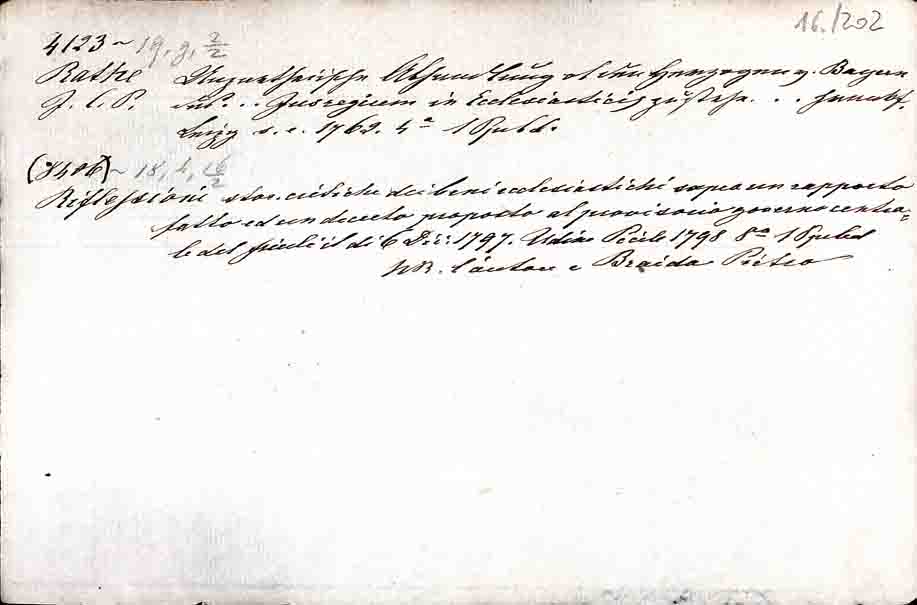 16./202
4123 ~ 19, g, 2/2
Rathe Abhandlung ob den Herzogen v. Bayern
J. C. P. Jus regium in Ecclesiasticis zustehe . .
Leipz s. e. 1769. 4° 1 Pubbl.
(8406) ~ 18, h, 16/2
Riflessioni stor. critiche dei beni ecclesiastichi sopra un rapporto
fatto ed un decreto proposto al provisorio governo centra=
le del friuli il di 6 Dic. 1797. Udine Pecile 1798 8° 1 Pubbl
NB. l'autore e Braida Pietro